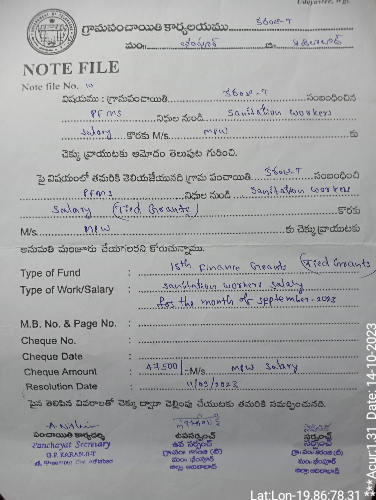 గ్రామపంచాయితి కార్యలయము కరంజి-T
మం॥ భీంపూర్ జి॥ ఆదిలాబాద్
NOTE FILE
Note file No. 10
విషయము : గ్రామపంచాయితి కరంజి-T సంబంధించిన
PFMS నిధుల నుండి Sanitation workers
Salary కొరకు M/s. MPW కు
చెక్కు వ్రాయుటకు ఆమోదం తెలుపుట గురించి.
పై విషయంలో తమరికి తెలియజేయునది గ్రామ పంచాయితి కరంజి-T సంబంధించి
PFMS నిధుల నుండి Sanitation workers
Salary (Tied Grants) కొరకు
M/s. MPW కు చెక్కు వ్రాయుటకు
అనుమతి మంజూరు చేయగలరని కోరుచున్నాము.
Type of Fund : 15th Finance Grants (Tied Grants)
Type of Work/Salary : Sanitation workers salary
for the month of September-2023
M.B. No. & Page No. :
Cheque No. :
Cheque Date :
Cheque Amount : 47,500/- M/s MPW Salary
Resolution Date : 11/09/2023
పైన తెలిపిన వివరాలతో చెక్కు ద్వారా చెల్లింపు చేయుటకు తమరికి సమర్పించునది.
పంచాయితి కార్యదర్శి ఉపసర్పంచ్ సర్పంచ్
Panchayat Secretary ఉప సర్పంచ్ సర్పంచ్
G.P. KARANJI-T గ్రా.పం. కరంజి (టి) గ్రా.పం. కరంజి (టి)
మం. భీంపూర్ మం. భీంపూర్
జిల్లా ఆదిలాబాద్ జిల్లా ఆదిలాబాద్
Lat:Lon-19.86:78.31
**Acur1.31 Date: 14-10-2023